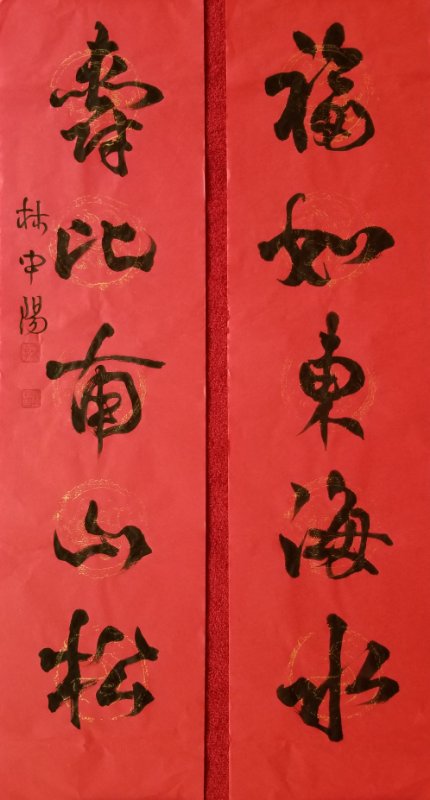 福如東海水
壽比南山松
林中陽